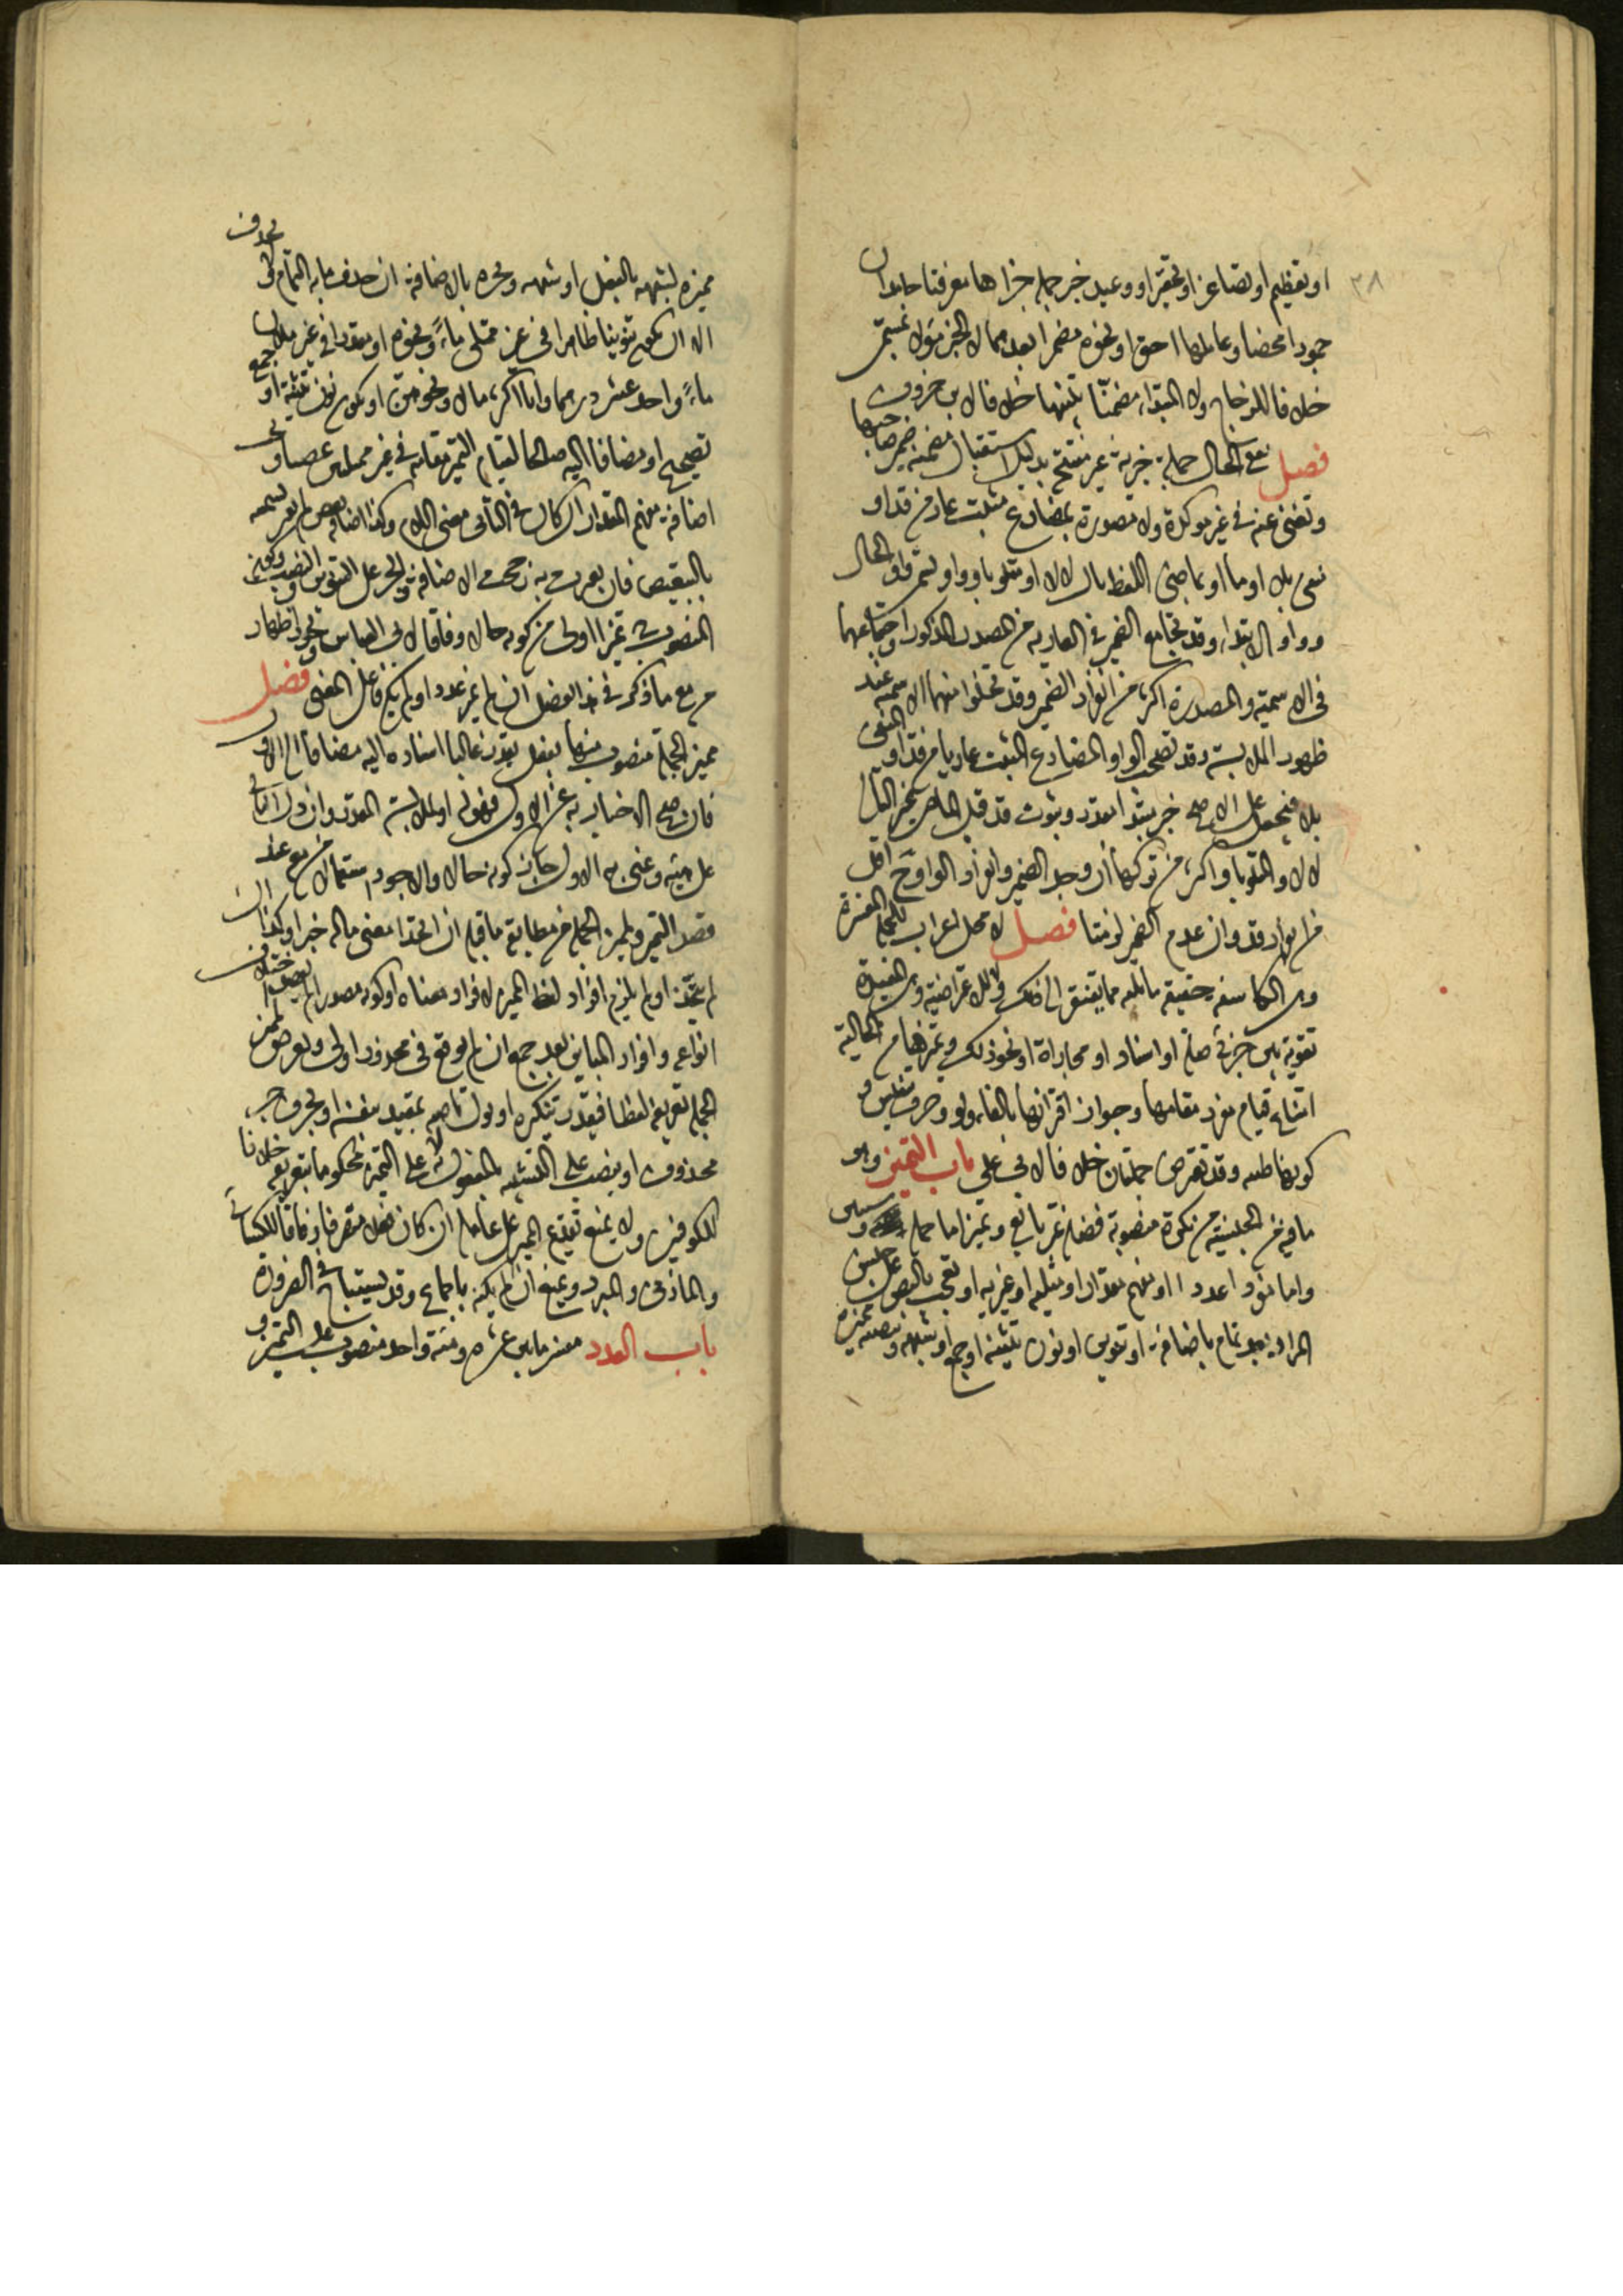 ٣٨
او تعظيم او تصاغر او تحقير او وعيد خبر جملة جزاها معرفتا جامدان
جمودا محضا وعاملها احق او نحوه مضمرا بعدهما لا الخبر مؤولا بمسمى
خلافا للزجاج ولا المبتدا مضمنا تنبيها خلافا لابن خروف
فصل تقع الحال جملة خبرية غير مفتتح بدليل استقبال مضمنة ضمير صاحبها
وتغني عنه في غير موكدة ولا مصدرة بمضارع مثبت عار من قد او
منفي بلا او ما او بماضي اللفظ تال لالا او متلو باو واو تسمى واو الحال
وواو الابتدا وقد تجامع الضمير في العارية من التصدير المذكور واجتماعهما
في الاسمية والمصدرة اكثر من انفراد الضمير وقد تخلو منهما الاسمية عند
ظهور الملابسة وقد تصحب الواو المضارع المثبت عاريا من قد او المنفي
بلا فيجعل على الاصح خبر مبتدا مقدر وثبوت قد قبل الماضي غير التالي
لالا والمتلو باو اكثر من تركها ان وجد الضمير وانفراد الواو ح اقل
من انفراد قد وان عدم الضمير لزمتا فصل لا محل اعراب للجملة المفسرة
وهي الكاشفة حقيقة ما تليه مما يفتقر الى ذلك ولا للاعتراضية وهي المفيدة
تقوية بين جزئي صلة او اسناد او مجازاة او نحو ذلك وتميزها من الحالية
امتناع قيام مفرد مقامها وجواز اقترانها بالفاء ولو وحرف تنفيس و
كونها طلبية وقد تعترض جملتان خلافا لابي علي باب التمييز وهو
ما فيه من الجنسية من نكرة منصوبة فضلة غير تابع ويميز اما جملة وسياتي
واما مفرد اعددا او مفهم مقدار او مثلية او غيرية او تعجب بالنص على جنس
المراد بعد تمام باضافة او تنوين او نون تثنية او جمع او شبهه وينصبه مميزه
مميزه لشبهه بالفعل او شبهه ويجره بالاضافة ان حذف ما به التمام ولا يحذف
الا ان يكون تنوينا ظاهرا في غير ممتلئ ماءً ونحوه او مقدرا في غير ملان
ماءً واحد عشر درهما وانا اكثر مالا ونحوهن او يكون نون تثنية او جمع
تصحيح او مضافا اليه صالحا لقيام التمييز مقامه في غير ممتلئين غضبا و تجب
اضافة مفهم المقدار ان كان في الثاني معنى اللام وكذا اضافة بعض لم تغير تسميته
بالتبعيض فان تغيرت به رجحت الاضافة والجر على التنوين والنصب وكون
المنصوب تمييزا اولى من كونه حالا وفاقا لابي العباس ويجوز اظهار
من مع ما ذكر في هذا الفصل ان لم يميز عددا ولم يكن فاعل المعنى فصل
مميز الجملة منصوب منها بفعل يقدر غالبا اسناده اليه مضافا الى الاول
فان صح الاخبار به عن الاول فهو له او لملابسه المقدر وان دل الثاني
على هيئة وعني به الاول جاز كونه حالا والاجود استعمال من مع عند
قصد التمييز ولمميز الجملة من مطابقة ما قبله ان اتحدا معنى ما له خبرا وكذا ان
لم يتحدا ولم يلزم افراد لفظ المميز لافراد معناه او كونه مصدرا لم يقصد اختلاف
انواعه وافراد المباين بعد جمع ان لم يوقع في محذور اولى ويعرض لمميز
الجملة تعريفه لفظا فيقدر تنكيره او يؤول ناصبه بمتعد بنفسه او بحرف جر
محذوف او ينصب على التشبيه بالمفعول به لا على التمييز محكوما بتعريفه خلافا
للكوفيين ولا يمنع تقديم المميز على عامله ان كان فعلا متصرفا وفاقا للكسائي
والمازني والمبرد ويمنع ان لم يكنه باجماع وقد يستباح في الضرورة
باب العدد مفسر ما بين عشرة ومئة واحد منصوب على التمييز و